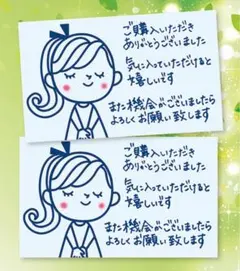 ご購入いただき
ありがとうございました
気に入っていただけると
嬉しいです
また機会がございましたら
よろしくお願い致します
ご購入いただき
ありがとうございました
気に入っていただけると
嬉しいです
また機会がございましたら
よろしくお願い致します